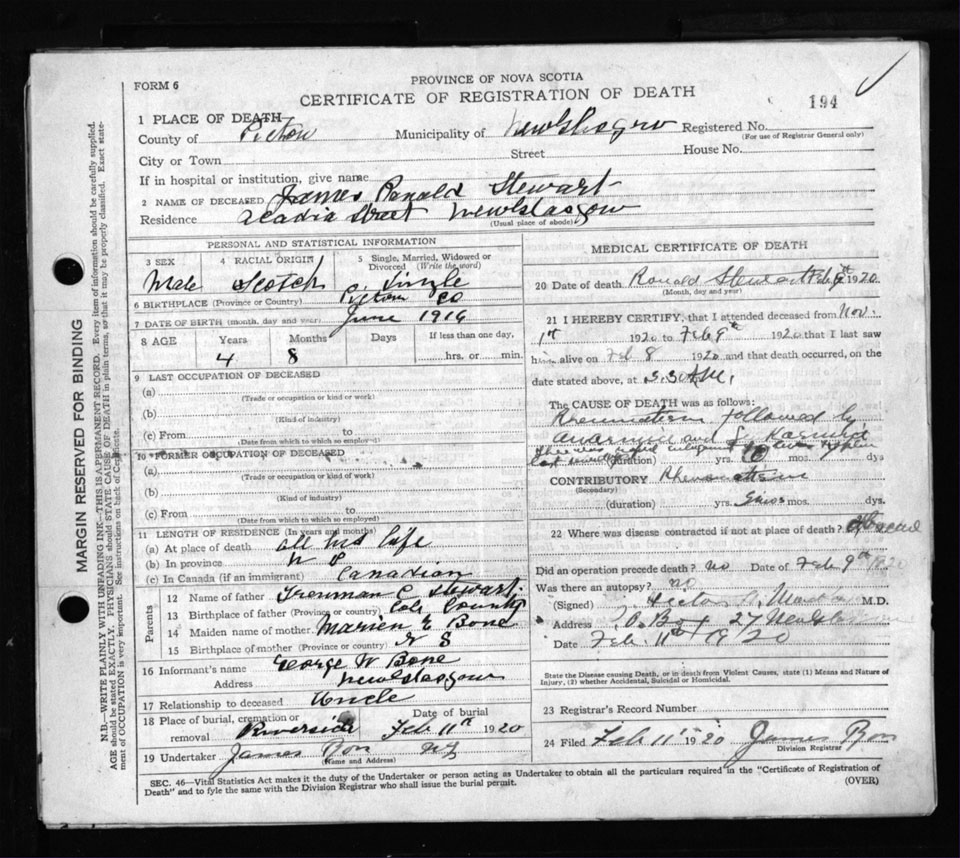 FORM 6
PROVINCE OF NOVA SCOTIA
CERTIFICATE OF REGISTRATION OF DEATH
194
1 PLACE OF DEATH
County of Pictou Municipality of New Glasgow Registered No.
(For use of Registrar General only)
City or Town Street House No.
If in hospital or institution, give name
2 NAME OF DECEASED James Ronald Stewart
Residence Acadia Street New Glasgow
(Usual place of abode)
PERSONAL AND STATISTICAL INFORMATION
3 SEX 4 RACIAL ORIGIN 5 Single, Married, Widowed or Divorced (Write the word)
Male Scotch Single
6 BIRTHPLACE (Province or Country) Pictou Co
7 DATE OF BIRTH (month, day and year) June 1916
8 AGE Years Months Days If less than one day,
4 8 hrs. or min.
9 LAST OCCUPATION OF DECEASED
(a)
(Trade or occupation or kind of work)
(b)
(Kind of industry)
(c) From
(Date from which to which so employed)
10 FORMER OCCUPATION OF DECEASED
(a)
(Trade or occupation or kind of work)
(b)
(Kind of industry)
(c) From
(Date from which to which so employed)
11 LENGTH OF RESIDENCE (In years and months)
(a) At place of death all his life
(b) In province N S
(c) In Canada (if an immigrant) Canadian
Parents
12 Name of father C Stewart
13 Birthplace of father (Province or country) Col. County
14 Maiden name of mother Marien E Bone
15 Birthplace of mother (Province or country) N S
16 Informant's name George W Bone
Address New Glasgow
17 Relationship to deceased Uncle
18 Place of burial, cremation or removal Riverside Date of burial Feb 11th 1920
19 Undertaker James
(Name and Address)
MEDICAL CERTIFICATE OF DEATH
20 Date of death Ronald Stewart Feb 9th 1920
(Month, day and year)
21 I HEREBY CERTIFY, that I attended deceased from Nov.
1st 1920 to Feb 9th 1920 that I last saw
him alive on Feb 8 1920 and that death occurred, on the
date stated above, at A.M.
The CAUSE OF DEATH was as follows:
Rheumatism followed by
and
there was
last
(duration) yrs. mos. dys
CONTRIBUTORY Rheumatism
(Secondary)
(duration) yrs. mos. dys.
22 Where was disease contracted if not at place of death?
Did an operation precede death? no Date of Feb 9th 1920
Was there an autopsy? no
(Signed) M.D.
Address P.O. Box 27 New Glasgow
Date Feb 11th 1920
State the Disease causing Death, or in death from Violent Causes, state (1) Means and Nature of Injury, (2) whether Accidental, Suicidal or Homicidal.
23 Registrar's Record Number
24 Filed Feb 11th 1920 James
Division Registrar
SEC. 46—Vital Statistics Act makes it the duty of the Undertaker or person acting as Undertaker to obtain all the particulars required in the "Certificate of Registration of
Death" and to fyle the same with the Division Registrar who shall issue the burial permit. (OVER)
MARGIN RESERVED FOR BINDING
N.D.—WRITE PLAINLY WITH UNFADING INK—THIS IS A PERMANENT RECORD. Every item of information should be carefully supplied.
AGE should be stated EXACTLY. PHYSICIANS should STATE CAUSE OF DEATH in plain terms, so that it may be properly classified. Exact state-
ment of OCCUPATION is very important. See instructions on back of Certificate.